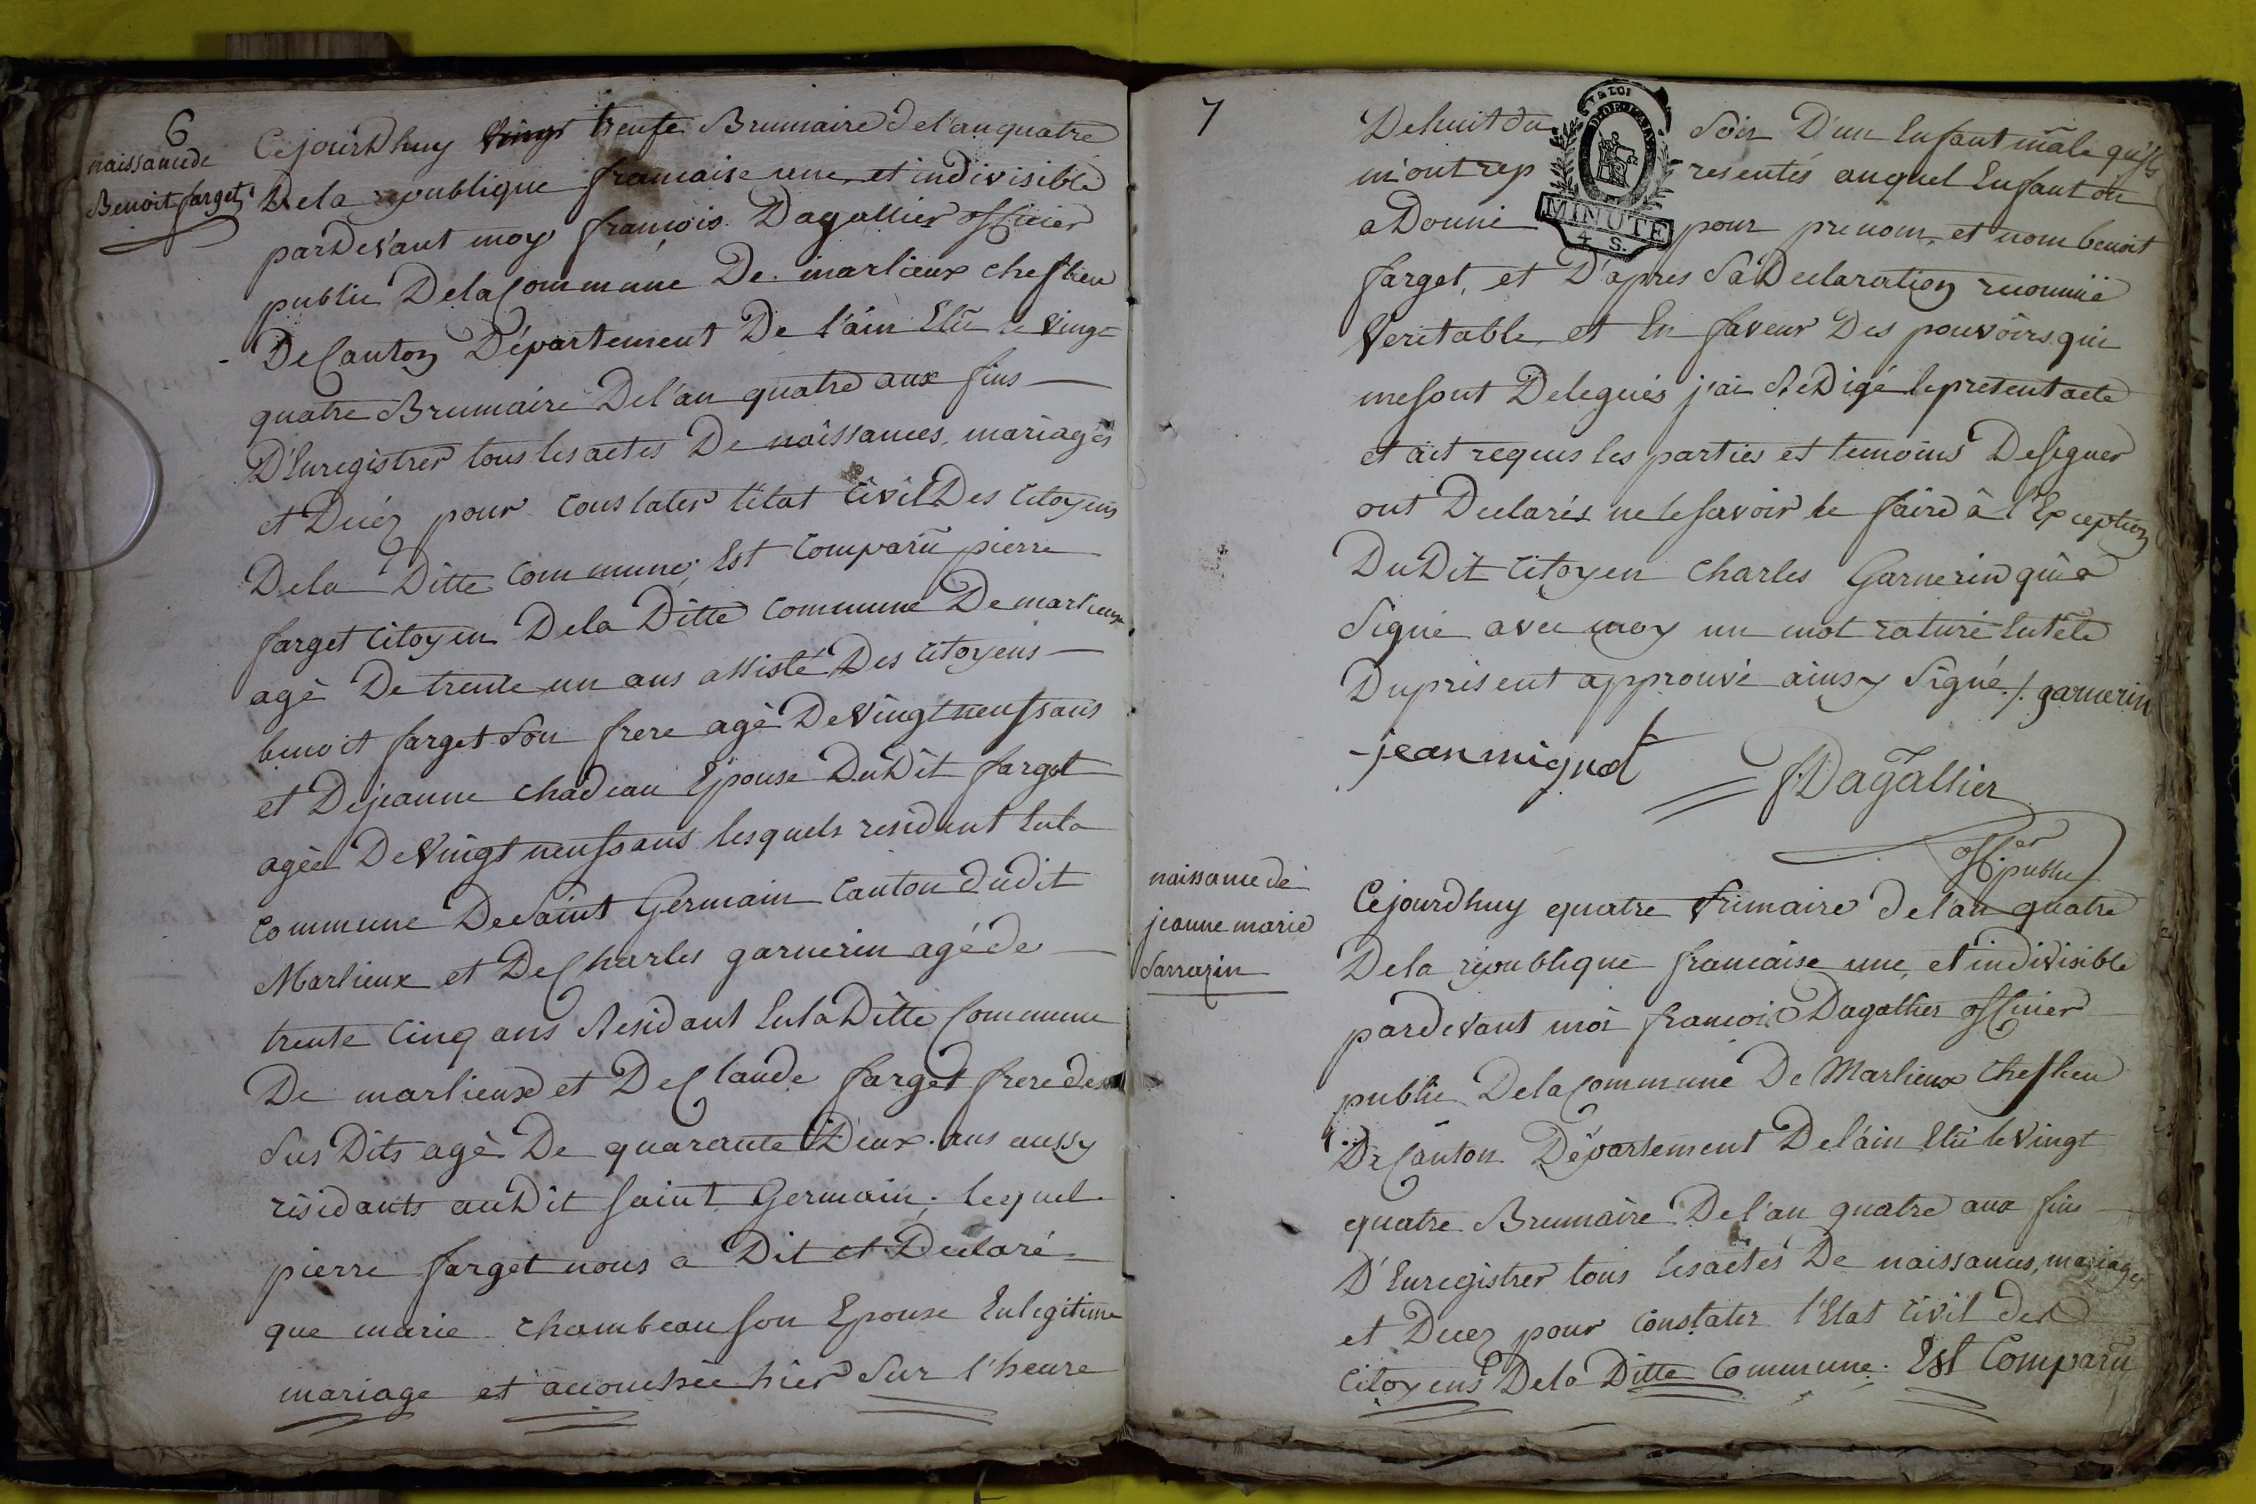 6
naissance de
Benoit farget
Cejourdhuy vingt trente Brumaire de l'an quatre
De la republique francaise une et indivisible
pardevant moy françois Dagallier officier
public De la Commune De marlieux chef lieu
De Canton Département De l'ain Elu le vingt
quatre Brumaire De l'an quatre aux fins
D'Enregistrer tous les actes De naissances, mariages
et Décéz pour constater l'état civil Des citoyens
De la Ditte commune, Est comparu pierre
farget citoyen De la Ditte commune De marlieux
agé De trente un ans assisté Des citoyens
benoit farget son frere agé De vingt neuf ans
et De jeanne chadeau Epouse Du Dit farget
agée De vingt neuf ans lesquels resident En la
commune De Saint Germain canton dudit
Marlieux et De Charles garnerin agé de
trente cinq ans Residant En la Ditte Commune
De marlieux et De Claude farget frere des
Sus Dits agé De quarente Deux ans aussy
résidants au Dit Saint Germain, lequel
pierre farget nous a Dit et Declaré
que marie chambeau son Epouse En legitime
mariage et accouchée hier Sur l'heure
7
De huit du Soir D'un Enfant mâle qu'ils
m'ont rep resentés auquel Enfant on
a Donné pour prenom, et nom benoit
MINUTE
4 S.
farget, et D'apres Sa Declaration reconnuë
Veritable et En faveur Des pouvoirs qui
me sont Delegués j'ai Redigé le present acte
et ait requis les parties et temoins De signer
ont Declarés ne le savoir le faire à l'Exception
Du Dit citoyen Charles Garnerin qui a
Signé avec moy un mot raturé En tête
Du present approuvé ainsy Signé ./. garnerin
jean mignot
f Dagallier
off.er public
naissance de
jeanne marie
Sarrazin
Cejourdhuy quatre frimaire de l'an quatre
De la republique francaise une, et indivisible
pardevant moi francois Dagallier officier
public De la commune De Marlieux Chef lieu
De Canton Département De l'ain Elu le vingt
quatre Brumaire De l'an quatre aux fins
D'Enregistrer tous les actes De naissances, mariages
et Decez pour constater l'Etat civil des
citoyens De la Ditte commune. Est Comparu